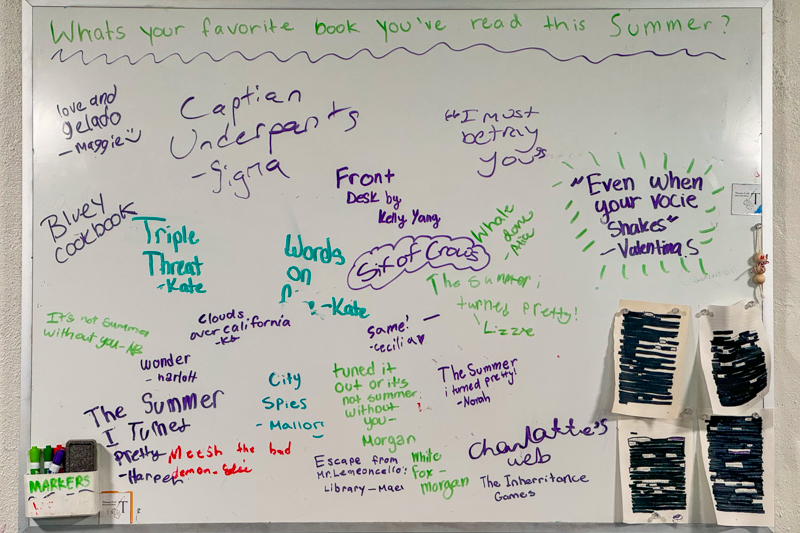 Whats your favorite book you've read this Summer?
love and
gelado
- Maggie
Captian
Underpants
- Signa
"I must
betray
you"
Front
Desk by
Kelly Yang
"Even when
your vocie
Shakes"
- Valentina.S
Bluey
cookbook
Triple
Threat
- Kate
Words
on
- Kate
Whale
done
Six of Crows
The Summer i
turned pretty!
Lizzie
It's not summer
without you
clouds
over california
same! -
- cecilia
wonder
The Summer
I Turned
pretty
- Harper
City
Spies
tuned it
out or it's
not summer
without
you -
Morgan
The Summer
i turned pretty!
- Norah
Meesh the bad
demon
Escape from
Mr. Lemeoncello's
Library - Mae
White
fox -
morgan
Charlatte's
web
The Inherritance
Games
MARKERS